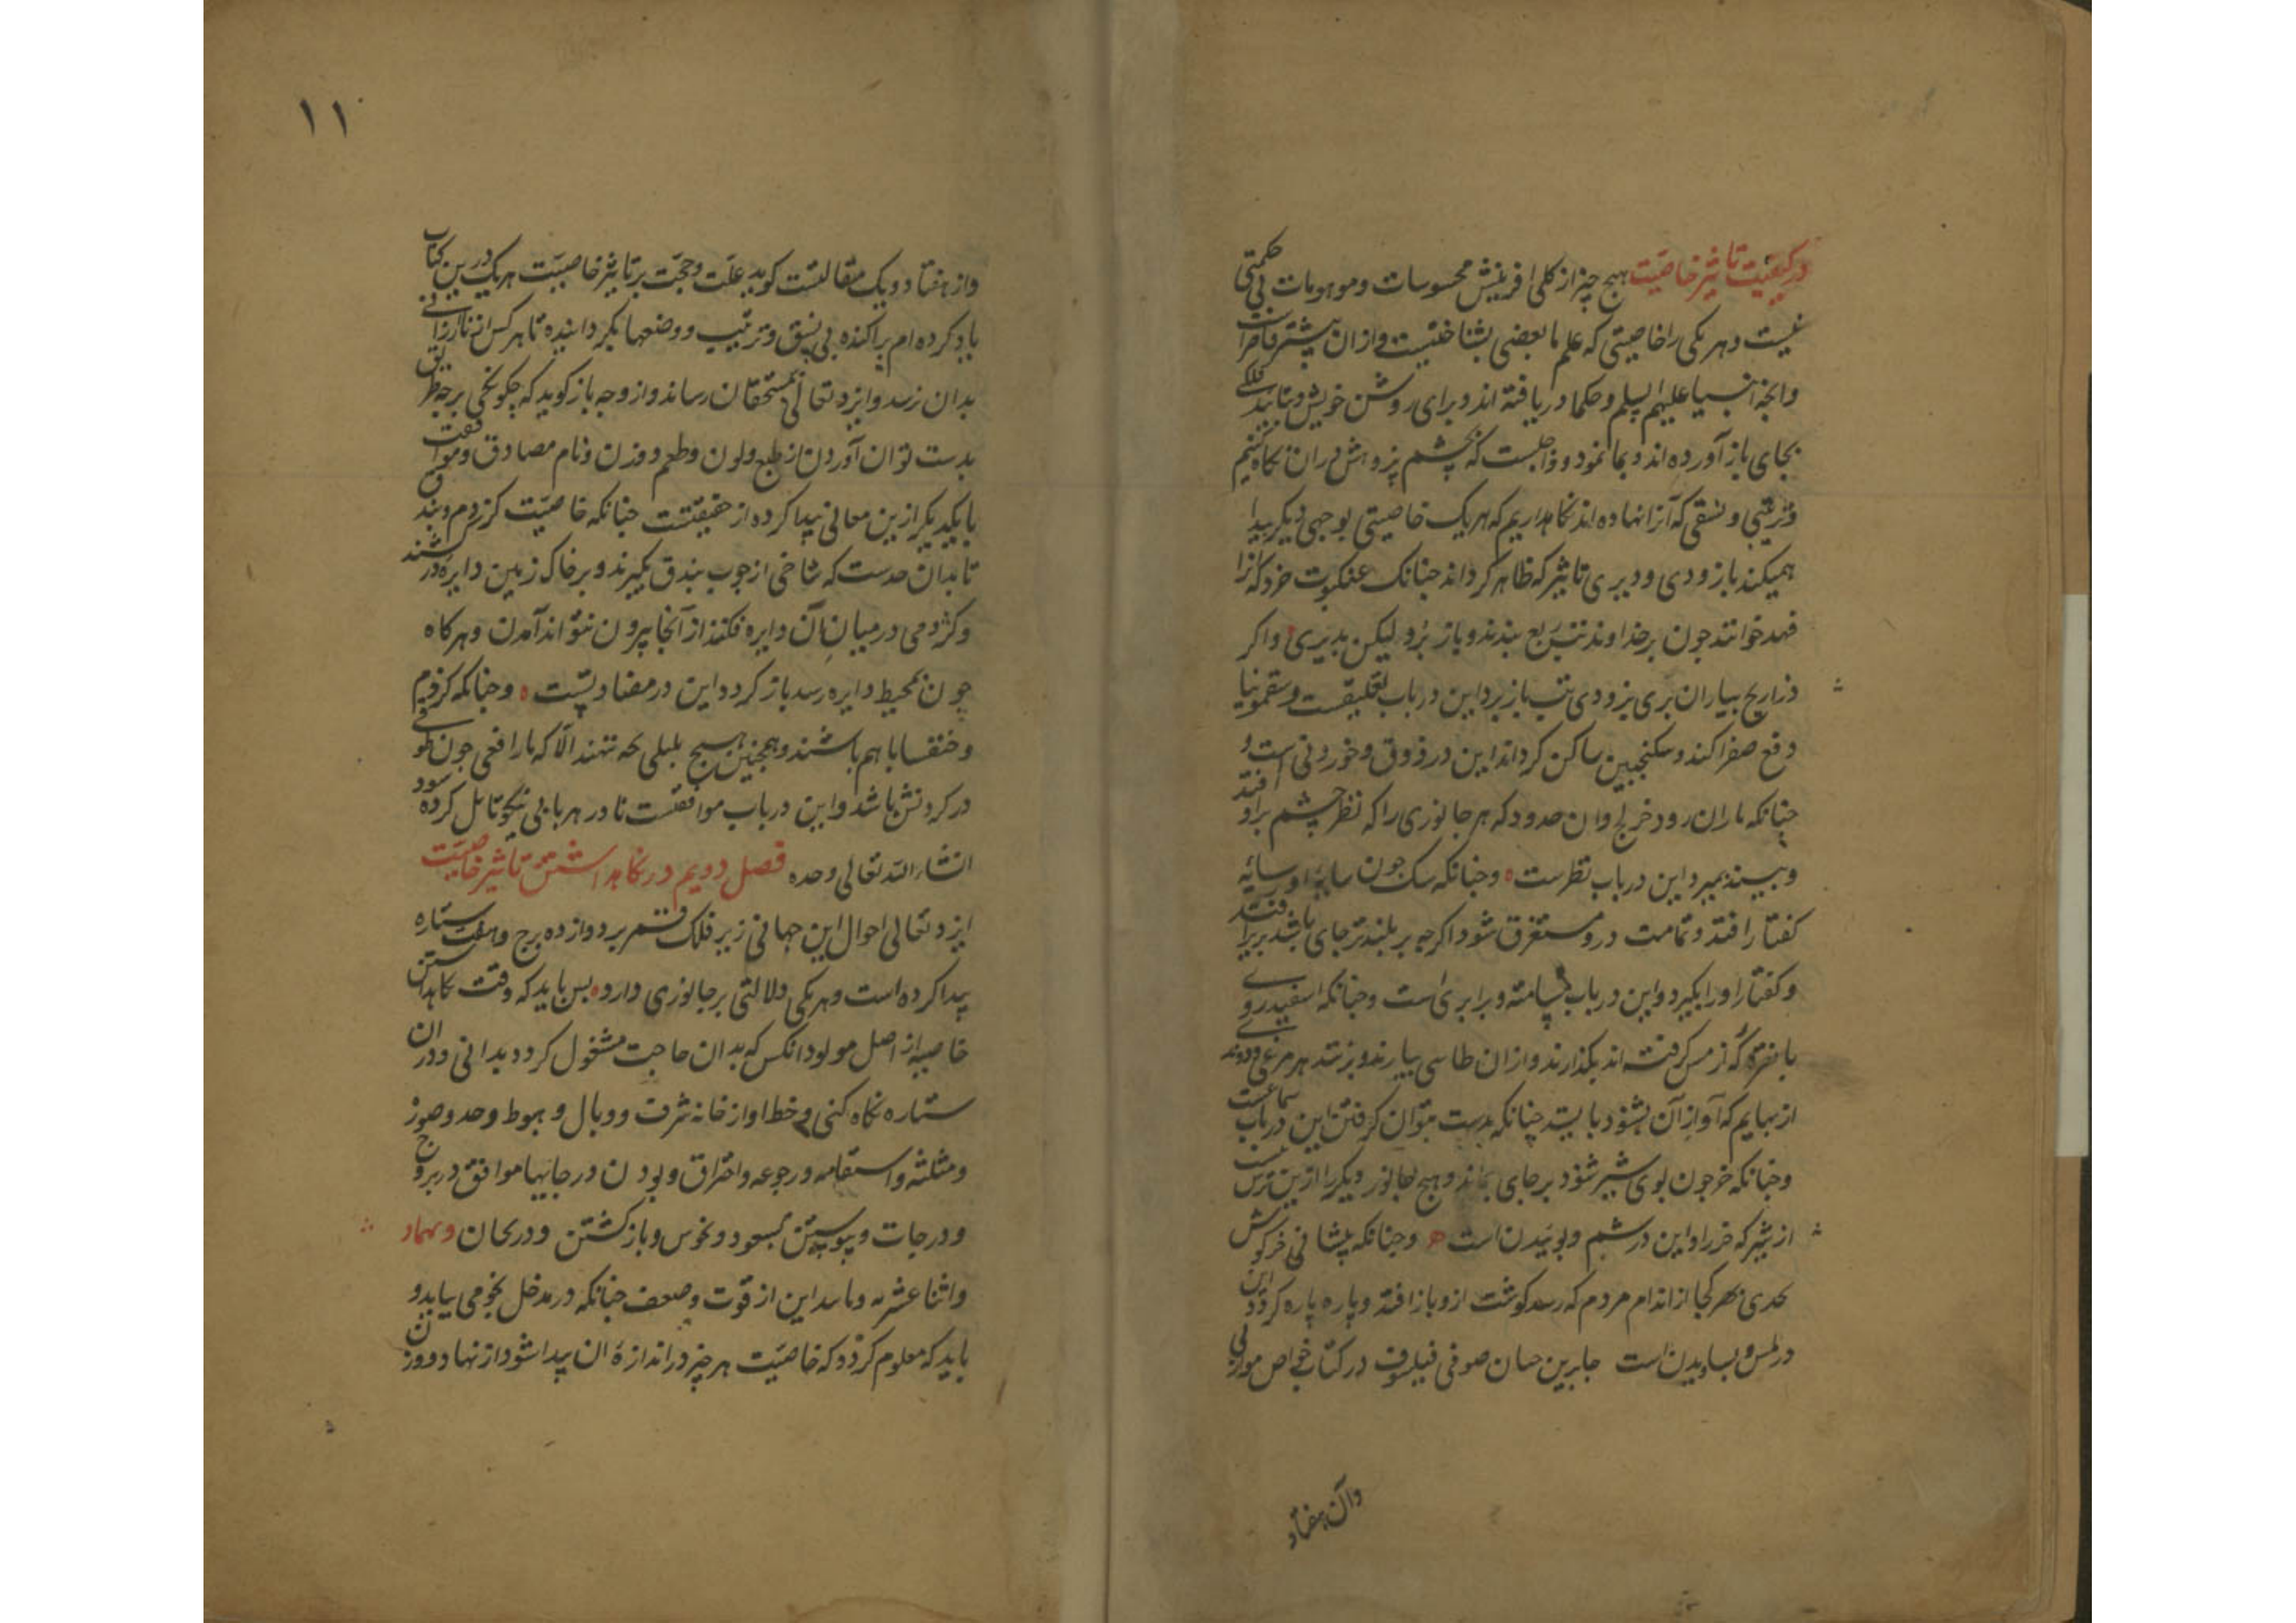 در کیفیت تاثیر خاصیت هیچ چیز از کلی افرینش محسوسات و موهومات بی حکمتی
نیست و هر یکی را خاصیتی که علم ما بعضی بشناختنیست و از ان بیشتر قاصرات
وانچه انبیا علیهم السلم و حکما دریافته اند و برای روشن خویش و تایید فلکی
بجای باز آورده اند و بما نموده واجبست که بچشم پژوهش دران نگاه کنیم
و ترتیبی و نسقی که آنرا نهاده اند نگاه داریم که هر یک خاصیتی بوجهی دیگر پیدا
همیکند باز زودی و دیری تاثیر که ظاهر کرداند چنانک عنکبوت خرد که انرا
فهد خوانند چون بر خداوند تب ربع بندند و باز برد لیکن بدیری واکر
ذراریح بیاران بری بزودی تب باز برد این در باب تعلیقست و سقمونیا
دفع صفرا کند و سکنجبین ساکن کرداند این در ذوق و خوردنی است و
چنانکه ماران رود خرلج وان حدود که هر جانوری را که نظر چشم برو افتد
و ببیند بمیرد این در باب نظرست ه و چنانکه سک چون سایهٔ او بر سایه
کفتار افتد و تمامت درو مستغرق شود اکرچه بر بلندتر جای باشد بزیر افتد
و کفتار او را بگیرد و این در باب مسامته و برابری است و چنانکه اسفیدروی
با نقره که از مس کرفته اند بکذارند و از ان طاسی بیارند و بزنند هر مرغی و دونده
از بهایم که آواز آن بشنود بایستد چنانکه بدست بتوان کرفتن این در باب سماعست
و چنانکه خر چون بوی شیر شنود بر جای بماند و هیچ جانور دیگر را ازین ترس نیست
از شیر که خر را و این در شم و بوئیدن است ه و چنانکه پیشانی خرکوش
بحدی بهر کجا از اندام مردم که رسد کوشت ازو باز افتد و پاره پاره کردد این
در لمس و بساویدن است جابر بن حیان صوفی فیلسوف در کتاب خواص موازنی
وآن هفتاد
۱۱
و از هفتاد و یک مقالتست کوید علت و حجت بر تاثیر خاصیت هر یک درین کتاب
یاد کرده ام پراکنده بی نسق و ترتیب و وضعها بکردانیده تا هر کس از نا ارزانی
بدان نرسد و ایزد تعالی بمستحقان رساند و از وجه باز کوید که چکونکی بر چه طریق
بدست توان آوردن از طبع و لون و طعم و وزن و نام مصادق و موافقت
با یکدیگر ازین معانی پیدا کرده از حقیقتست چنانکه خاصیت کزدم و بندق
تا بدان حدست که شاخی از چوب بندق بگیرند و بر خاک زمین دایره درکشند
و کژدمی در میان آن دایره فکنند از آنجا بیرون نتواند آمدن و هر کاه
چون بمحیط دایره رسد باز کردد این در مضادیست ه و چنانکه کزدم
و خنفسا با هم باشند و همچنین هیچ بلبلی بچه ننهند الا که مار افعی چون طوقی
در کردنش باشد و این در باب موافقتست تا در هر بابی نیکو تامل کرده شود
انشاء الله تعالی وحده فصل دویم در نکاهداشتن تاثیر خاصیت
ایزد تعالی احوال این جهانی زیر فلک قمر بر دوازده برج و هفت ستاره
پیدا کرده است و هر یکی دلالتی بر جانوری دارد ه پس باید که وقت نکاهداشتن
خاصیه از اصل مولود انکس که بدان حاجت مشغول کردد بدانی و در ان
ستاره نکاه کنی و خط او از خانه شرف و وبال و هبوط و حد و صور
و مثلثه و استقامه و رجوعه و احتراق و بودن در جایها موافق در بروج
و درجات و پیوستن بسعود و نحوس و باز کشتن و دریجان و بهماد
و اثنا عشریه و مانند این از قوت و ضعف چنانکه در مدخل نجومی بیاید و
باید که معلوم کردد که خاصیت هر چیز در اندازهٔ ان پیدا شود از نهاد و وزن